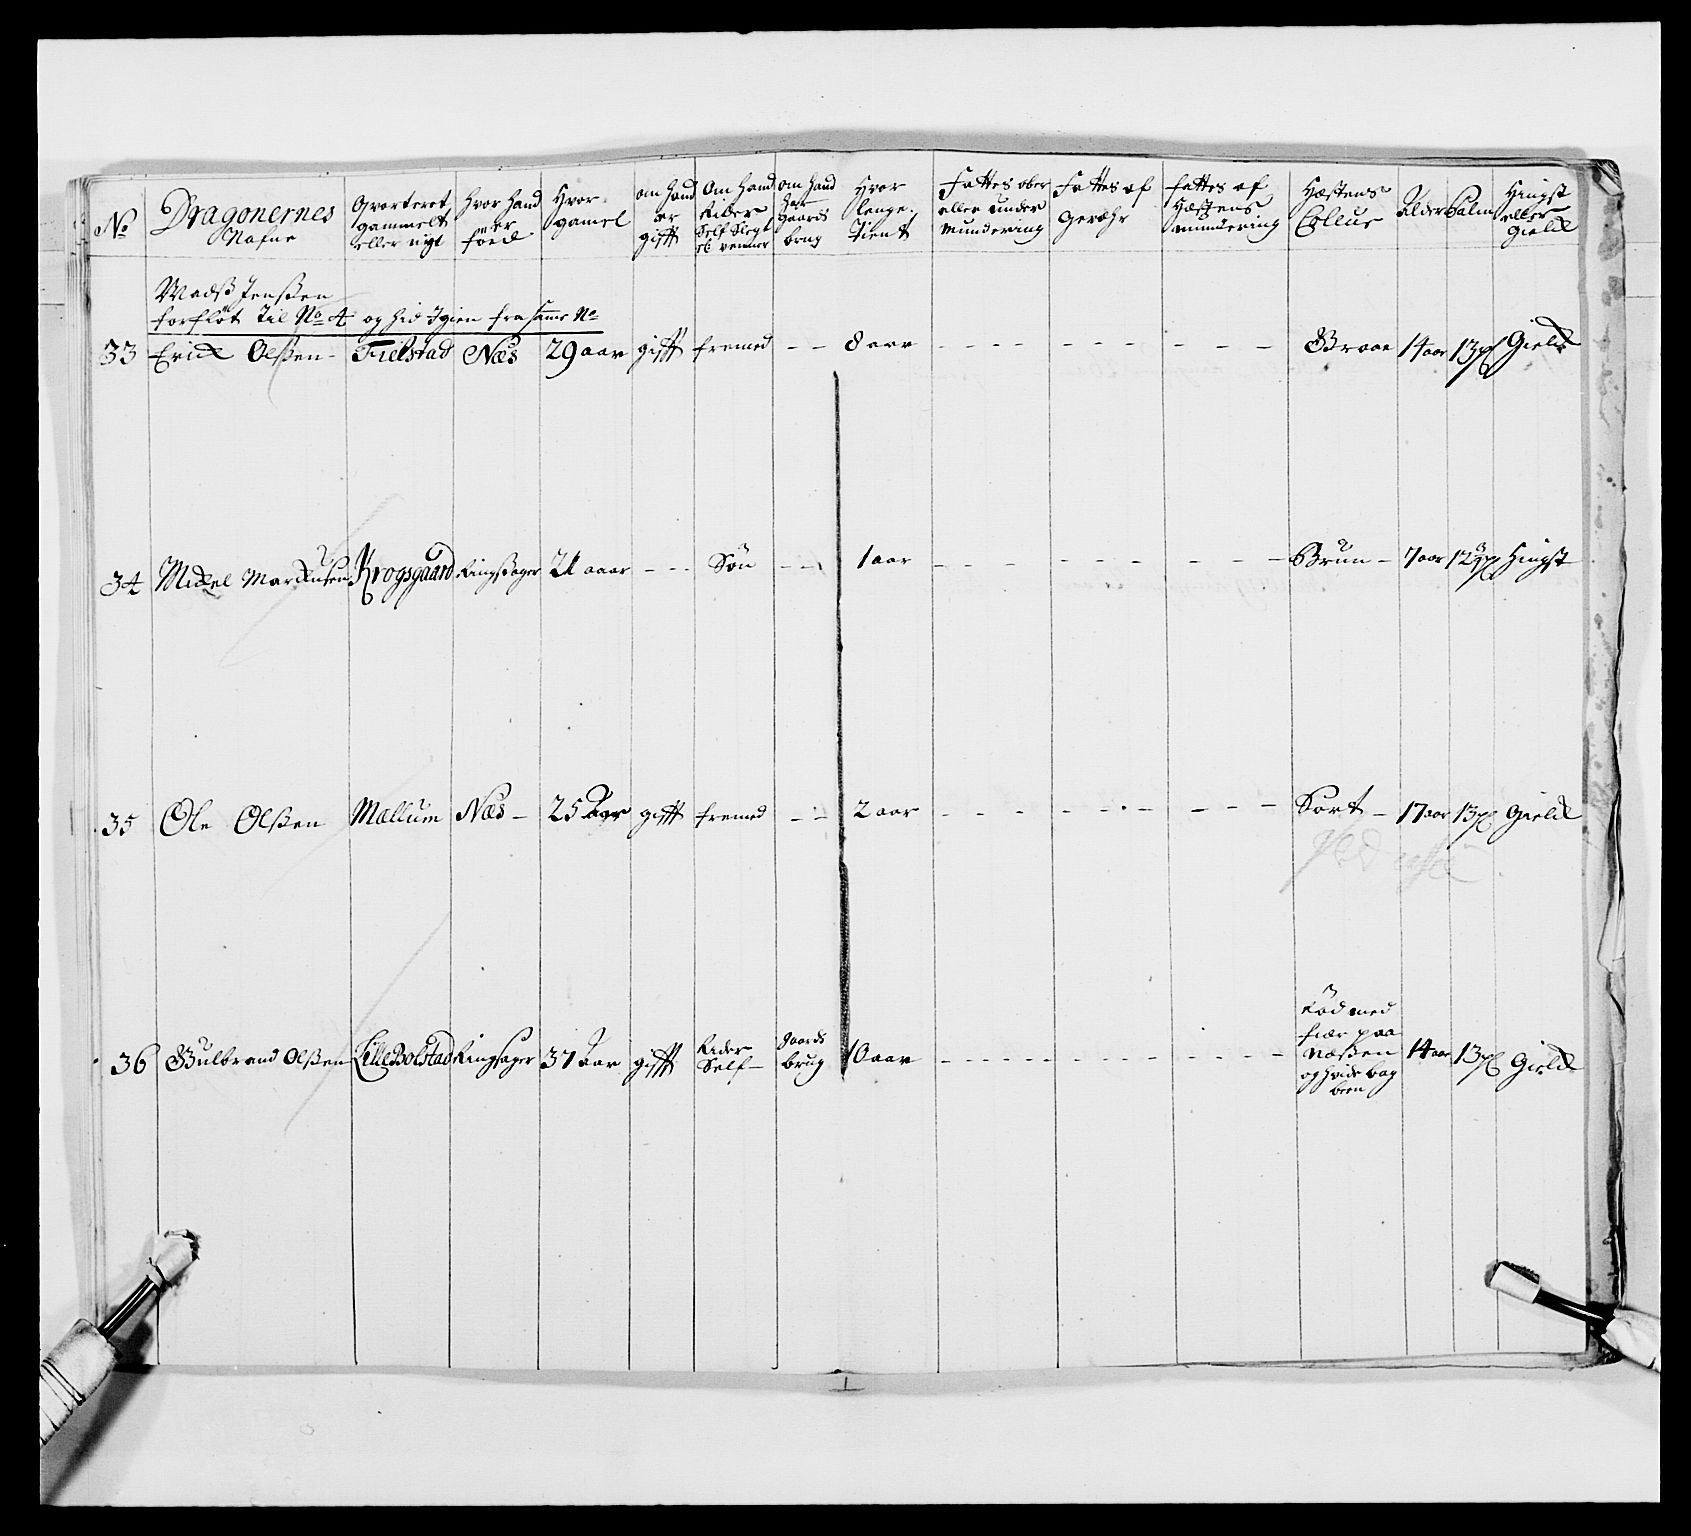 No Dragonernes Nafne | Qvarteret gammelt eller nÿt | Hvor hand er föed | Hvor gamel | om hand er gifft | Om hand Rider Self Slegt el venner | om hand har Gaards brug | Hvor lenge Tient | Fattes ober eller under mundering | Fattes af Gevæhr | fattes af Hæstens mundering | Hæstens Collur | Alder | Palm | Hingst eller Gield
Madß Jenßen
forfløt Til No 4 og hid Igien fra samme No
33 Erich Olßen - Tielstad Næs 29 aar gifft fremed - - 8 aar - - - - Braae 14 aar 13 pl Gield
34 Mickel Marckusen Krogsgaard Ringßager 21 aaar - - - Søn - - 1 aar - - - - Brun - 7 aar 12 3/4 pl Hingst
35 Ole Olßen Mællum Næs - 25 Aar gifft fremed - - 2 aar - - - - Sort - 17 aar 13 pl Gield
36 Gulbrand Olßen LilleBolstad Ringsager 37 Aar gifft Rider Self - gaards brug 10 aar - - - - Rød med
stier paa
Næßen
og hvide bag
been 14 aar 13 pl Gield